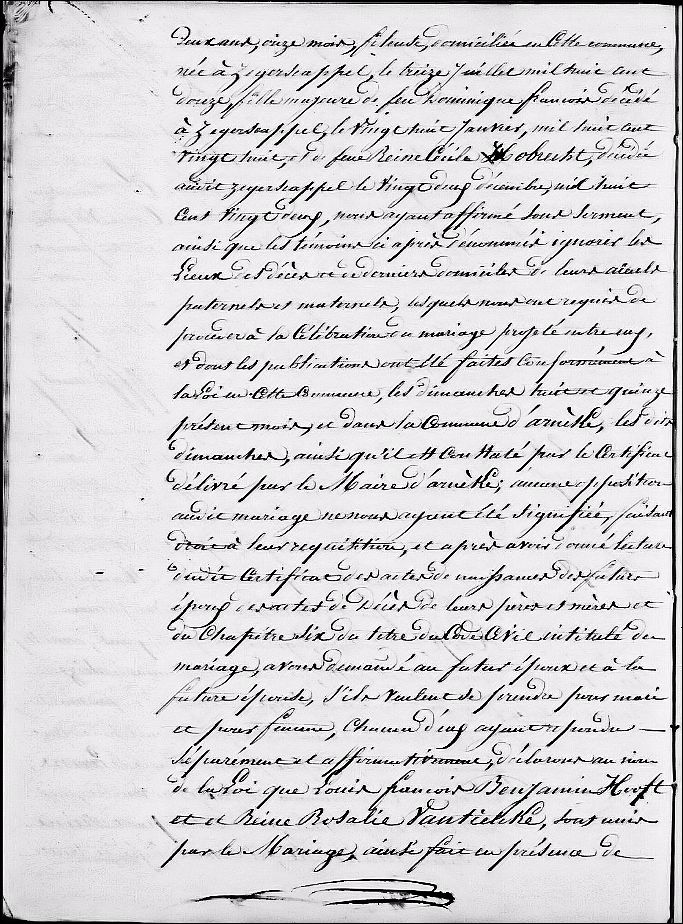 deux ans, onze mois, fileuse, domiciliée en cette commune,
née à Zegerscappel, le treize Juillet mil huit cent
douze, fille majeure de feu Dominique françois décédé
à Zegerscappel, le vingt huit Janvier, mil huit cent
vingt huit, et de feue Reine Cécile Hobrecht, décédée
audit Zegerscappel le vingt deux décembre, mil huit
cent vingt deux, nous ayant affirmé sous serment,
ainsi que les témoins ci après dénommés ignorer les
Lieux des décès et de derniers domiciles de leurs aïeuls
paternels et maternels, lesquels nous ont requis de
procéder à la Célébration du mariage projeté entre eux,
et dont les publications ont été faites Conformément à
la Loi en Cette Commune, les dimanches huit et quinze
présent mois, et dans la Commune d'arnèke, les dits
dimanches, ainsi qu'il est Constaté par le Certificat
délivré par le Maire d'arnèke; aucune opposition
audit mariage ne nous ayant été signifiée, faisant
droit à leur requisition, et après avoir donné lecture
dudit Certificat des actes de naissances des futurs
époux des actes de décès de leurs pères et mères et
du Chapitre six du titre du Code Civil intitulé du
mariage, avons demandé au futur époux et à la
future épouse, s'ils veulent se prendre pour mari
et pour femme, Chacun d'eux ayant répondu
séparément et affirmativement, déclarons au nom
de la Loi que Louis françois Benjamin Hooft
et et Reine Rosalie Vantielcke, sont unis
par le Mariage, ainsi fait en présence de